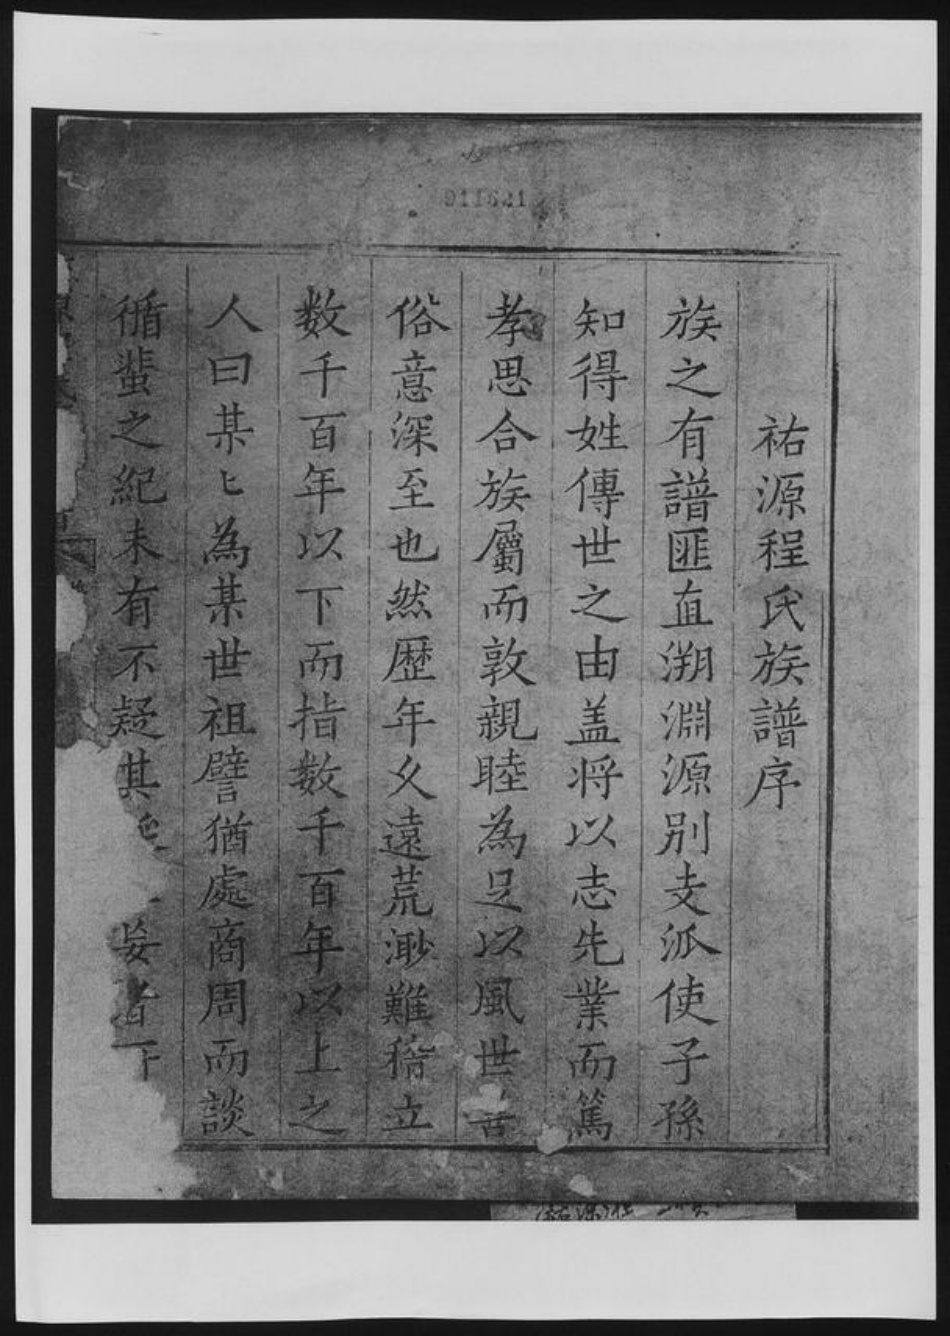 911621
祐源程氏族譜序
族之有譜匪直溯淵源別支派使子孫
知得姓傳世之由盖将以志先業而篤
孝思合族屬而敦親睦為足以風世善
俗意深至也然歷年久遠荒渺難稽立
数千百年以下而指数千百年以上之
人曰某匕為某世祖譬猶處商周而談
循蜚之紀未有不疑其 妄者